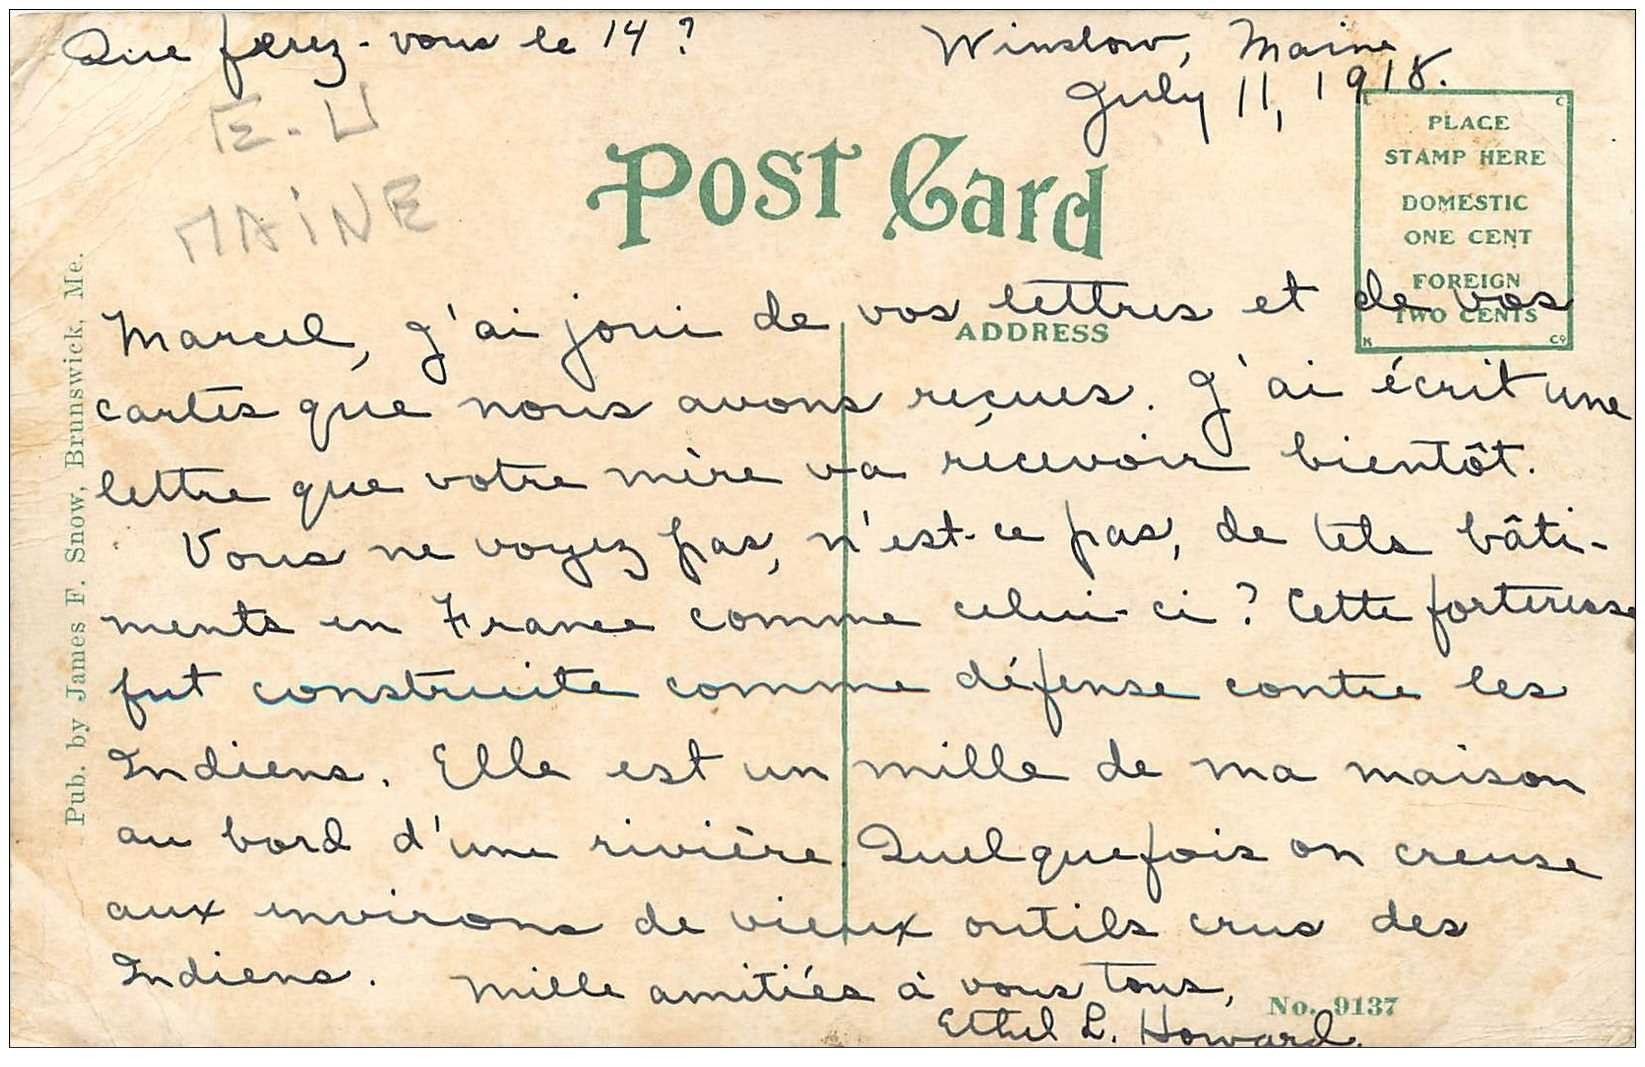 Que ferez-vous le 14?
Winslow, Maine,
July 11, 1918.
E-U
MAINE
POST CARD
PLACE
STAMP HERE
DOMESTIC
ONE CENT
FOREIGN
TWO CENTS
ADDRESS
Pub. by James F. Snow, Brunswick, Me.
Marcel, J'ai joui de vos lettres et de vos
cartes que nous avons reçues. J'ai écrit une
lettre que votre mère va recevoir bientôt.
Vous ne voyez pas, n'est-ce pas, de tels bâti-
ments en France comme celui-ci? Cette forteresse
fut construite comme défense contre les
Indiens. Elle est un mille de ma maison
au bord d'une rivière. Quelquefois on creuse
aux environs de vieux outils crus des
Indiens. Mille amitiés à vous tous,
Ethel L. Howard.
No. 9137